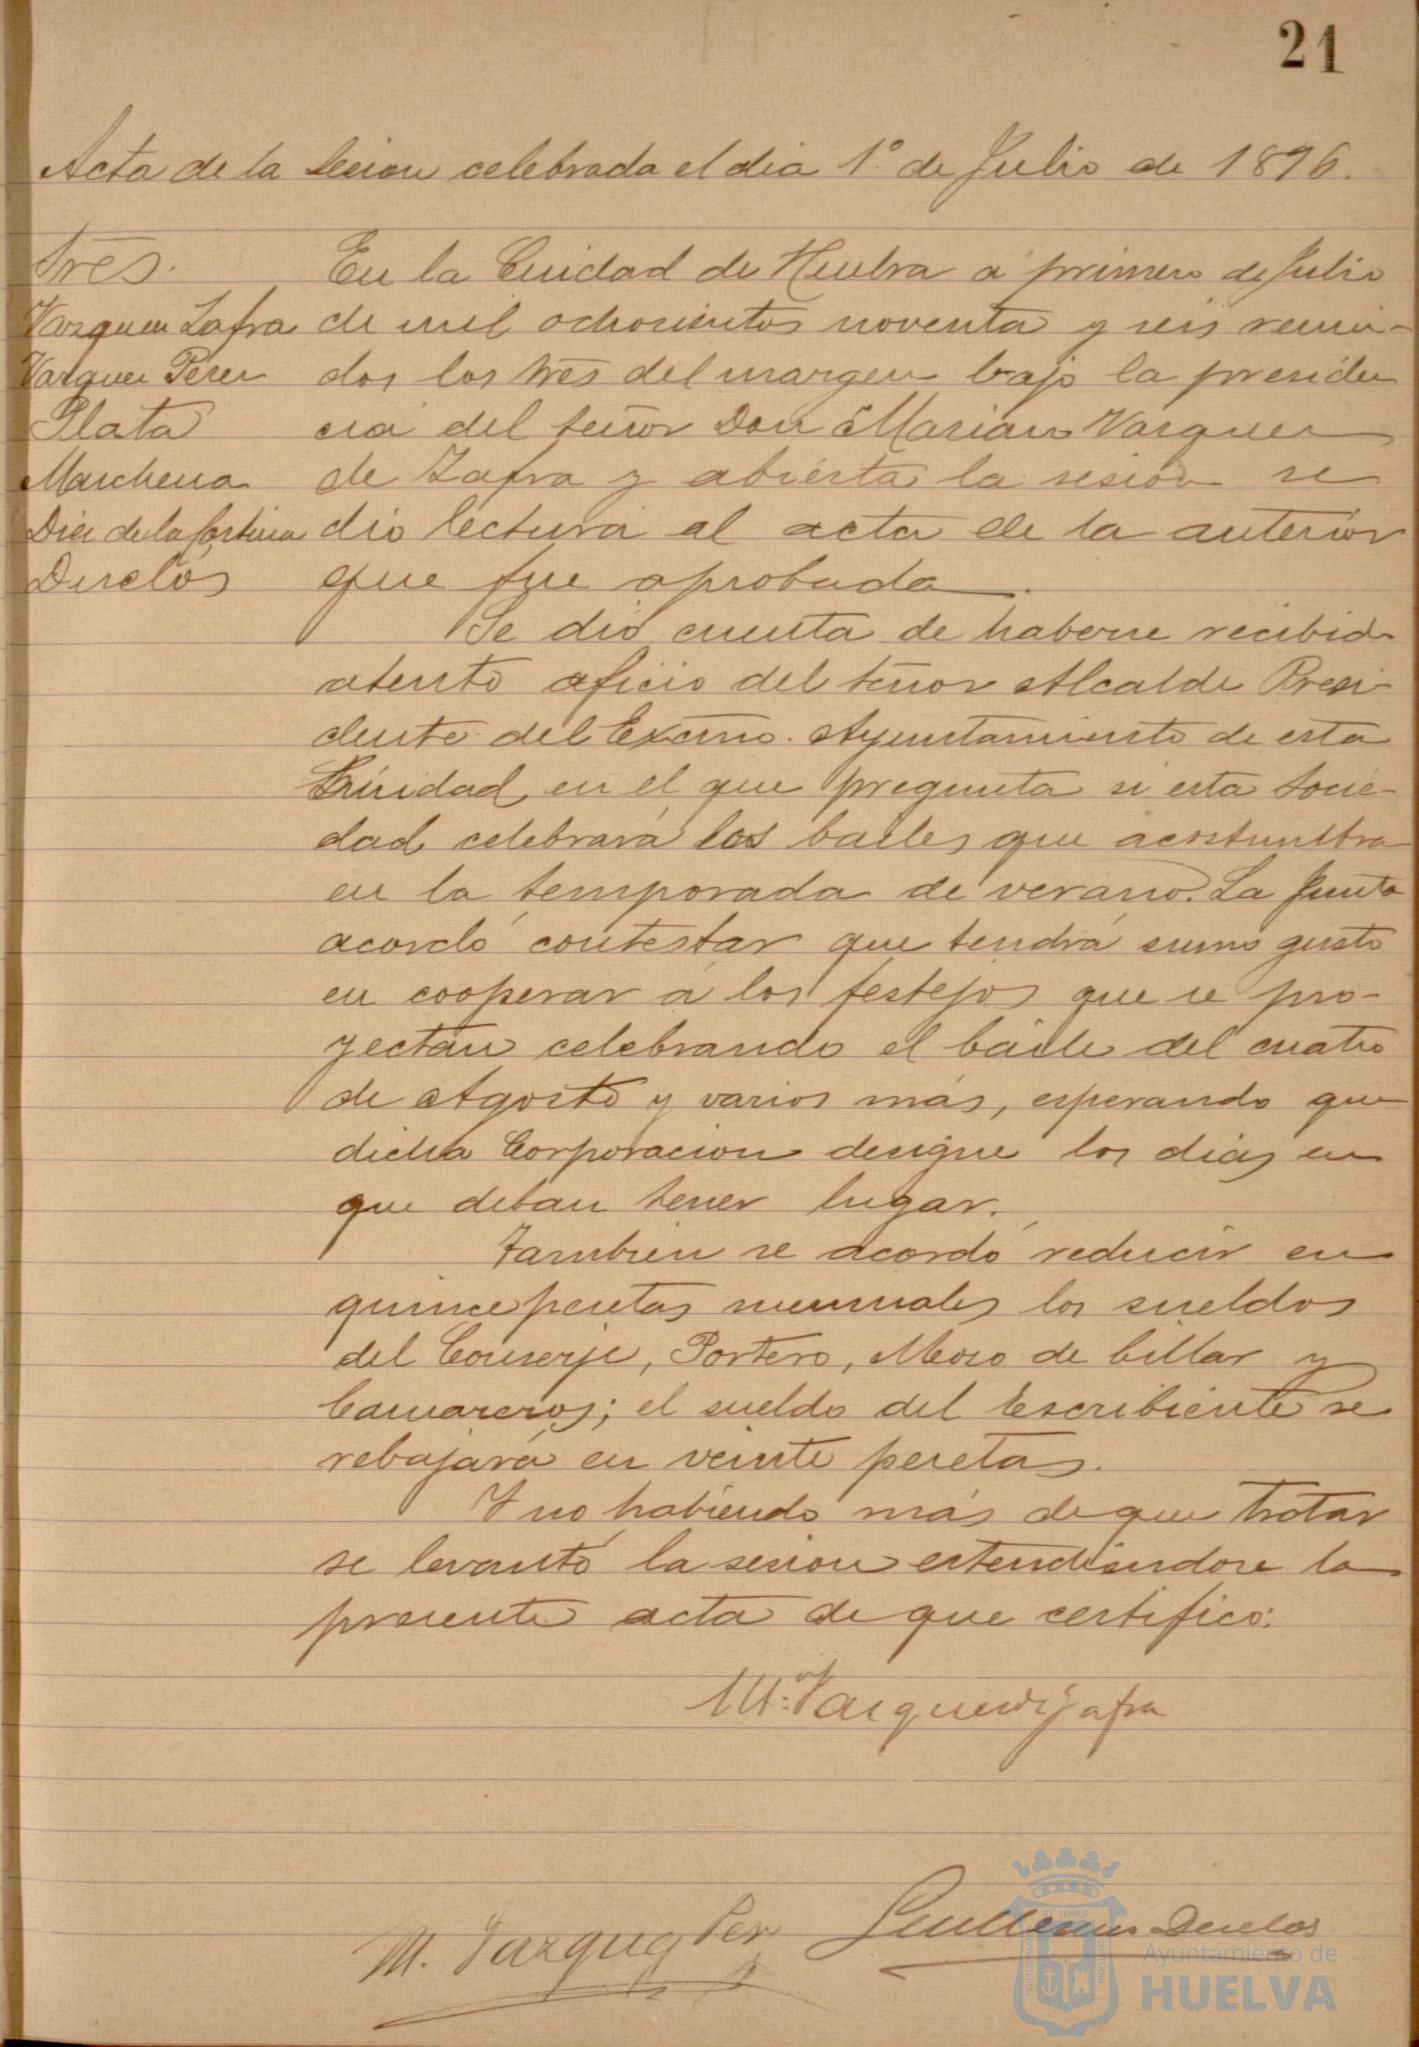 21
Acta de la sesion celebrada el dia 1º de Julio de 1896.
Sres.
Vazquez Zafra
Vazquez Perez
Plata
Marchena
Diez de la Cortina
Duclós
En la Ciudad de Huelva a primero de Julio
de mil ochocientos noventa y seis reuni-
dos los sres del margen bajo la presiden
cia del señor Don Mariano Vazquez
de Zafra y abierta la sesión se
dio lectura al acta de la anterior
que fue aprobada.
Se dió cuenta de haberse recibido
atento oficio del señor Alcalde Presi-
dente del Excmo. Ayuntamiento de esta
Ciudad, en el que pregunta si esta Socie-
dad celebrará los bailes que acostumbra
en la temporada de verano. La Junta
acordó contestar que tendrá sumo gusto
en cooperar á los festejos que se pro-
yectan celebrando el baile del cuatro
de Agosto y varios más, esperando que
dicha Corporacion designe los dias en
que deban tener lugar.
Tambien se acordó reducir en
quince pesetas mensuales los sueldos
del Conserje, Portero, Mozo de billar y
Camareros; el sueldo del Escribiente se
rebajará en veinte pesetas.
Y no habiendo más de que tratar
se levantó la sesion estendiendose la
presente acta de que certifico:
M: Vazquez de Zafra
M. Vazquez Perez
Guillermo Duclos
Ayuntamiento de
HUELVA